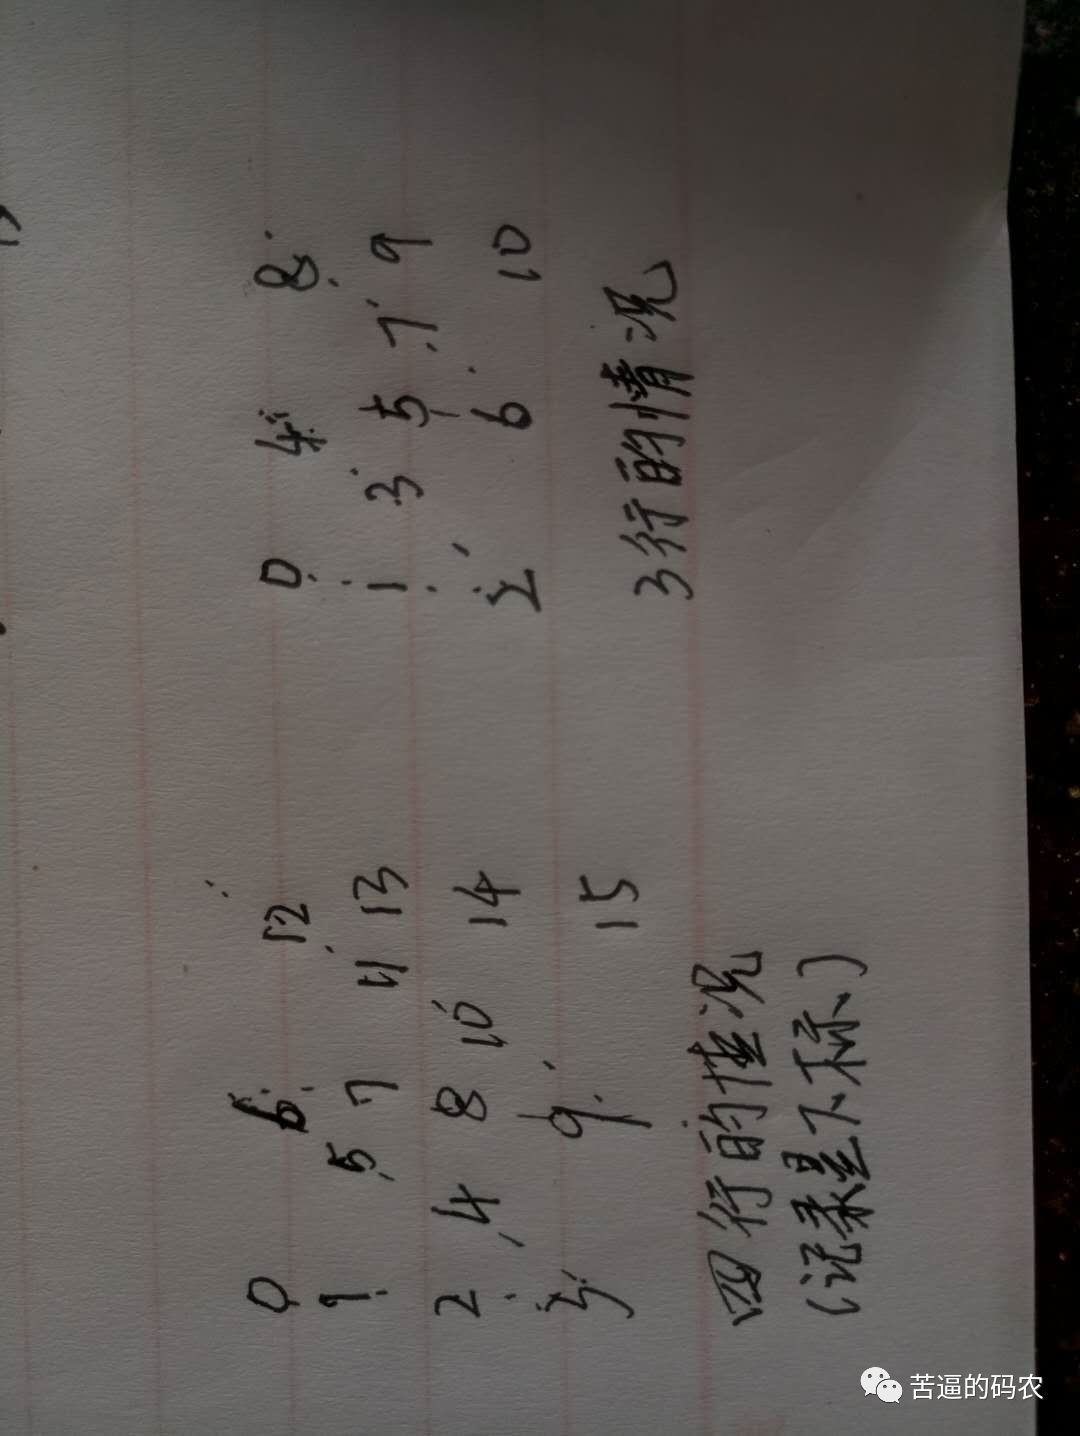 0 6 12
1 5 7 11 13
2 4 8 10 14
3 9 15
四行的情况
(记录是下标)
0 4 8
1 3 5 7 9
2 6 10
3行的情况
苦逼的码农